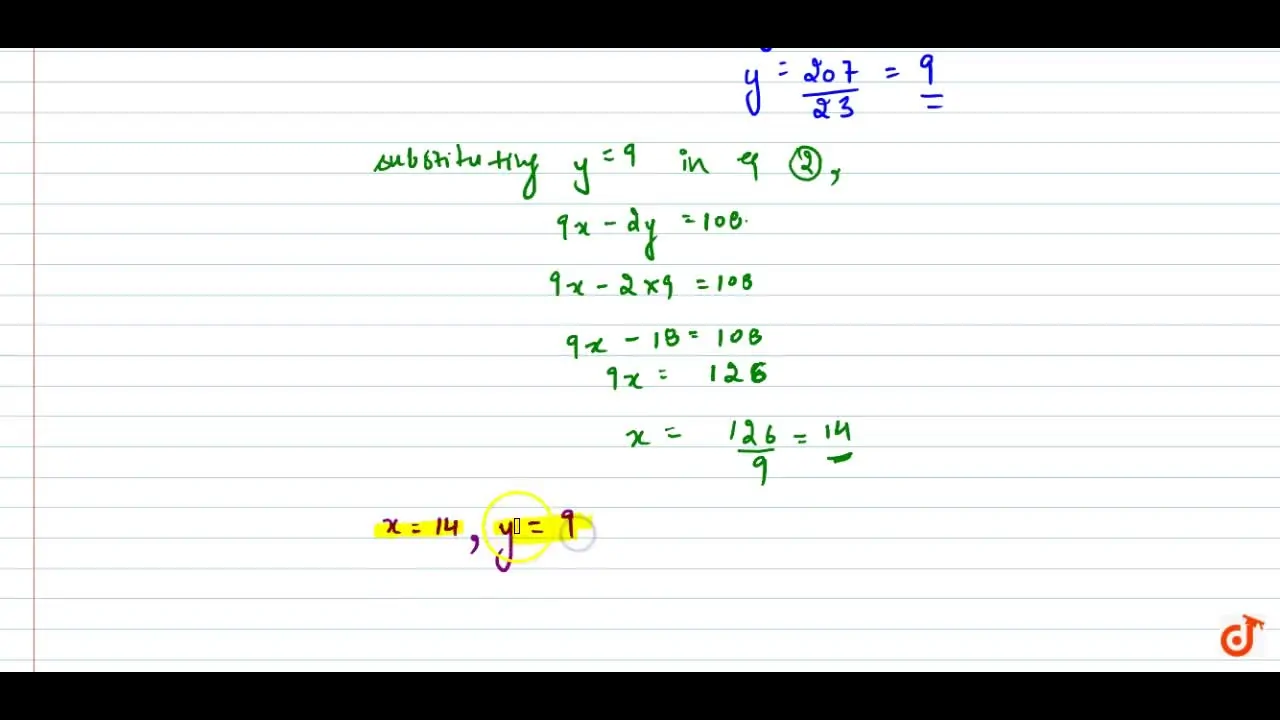 y = 207/23 = 9
substituting y = 9 in eq ②,
9x - 2y = 108
9x - 2×9 = 108
9x - 18 = 108
9x = 126
x = 126/9 = 14
x = 14, y = 9